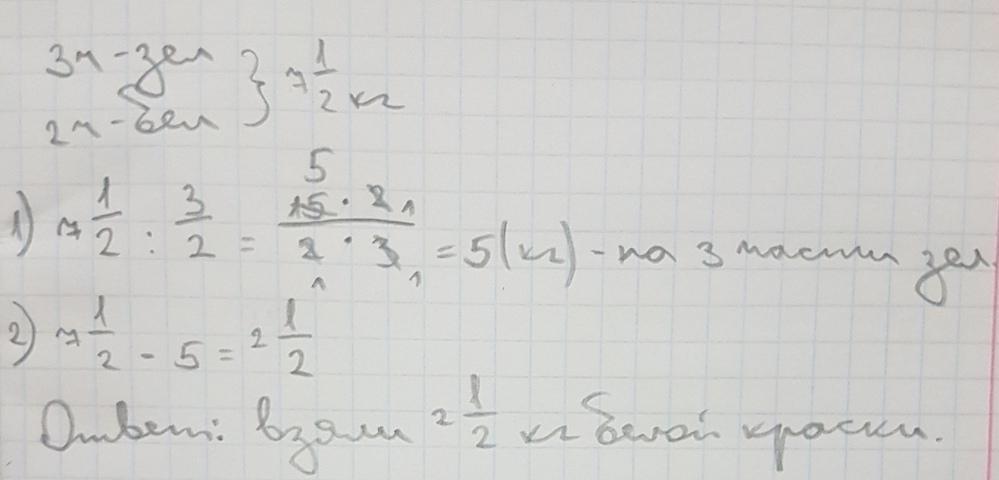 3ч - зел } 7 1/2 кг
2ч - бел
1) 7 1/2 : 3/2 = 15 · 2 / 2 · 3 = 5 (кг) - на 3 части зел.
2) 7 1/2 - 5 = 2 1/2
Ответ: взяли 2 1/2 кг белой краски.